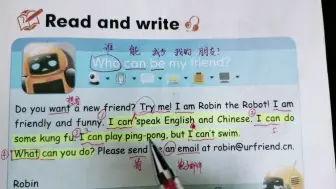 Read and write
谁 能 成为 我的 朋友?
Who can be my friend?
Do you want a new friend? Try me! I am Robin the Robot! I am
friendly and funny. I can speak English and Chinese. I can do
some kung fu. I can play ping-pong, but I can't swim.
What can you do? Please send me an email at robin@urfriend.cn.
Robin